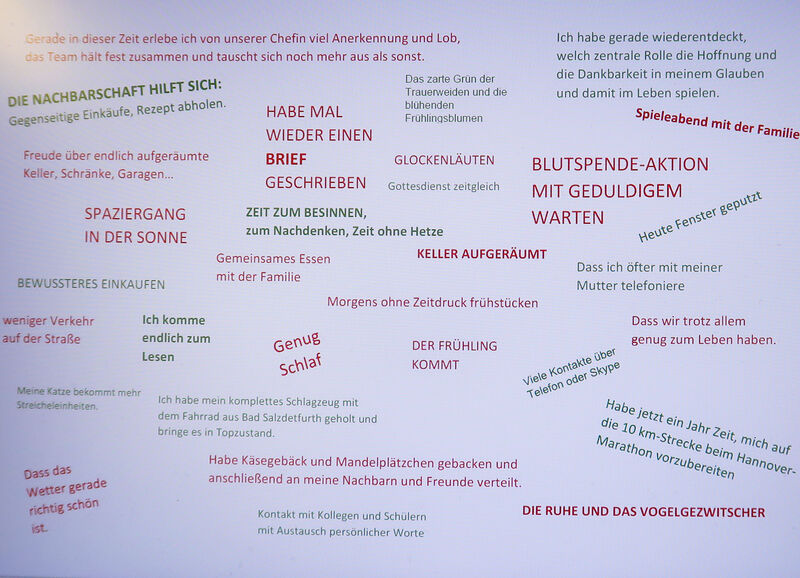 Gerade in dieser Zeit erlebe ich von unserer Chefin viel Anerkennung und Lob,
das Team hält fest zusammen und tauscht sich noch mehr aus als sonst.
Ich habe gerade wiederentdeckt,
welch zentrale Rolle die Hoffnung und
die Dankbarkeit in meinem Glauben
und damit im Leben spielen.
DIE NACHBARSCHAFT HILFT SICH:
Gegenseitige Einkäufe, Rezept abholen.
HABE MAL
WIEDER EINEN
BRIEF
GESCHRIEBEN
Das zarte Grün der
Trauerweiden und die
blühenden
Frühlingsblumen
Spieleabend mit der Familie
Freude über endlich aufgeräumte
Keller, Schränke, Garagen...
GLOCKENLÄUTEN
Gottesdienst zeitgleich
BLUTSPENDE-AKTION
MIT GEDULDIGEM
WARTEN
SPAZIERGANG
IN DER SONNE
ZEIT ZUM BESINNEN,
zum Nachdenken, Zeit ohne Hetze
Heute Fenster geputzt
Gemeinsames Essen
mit der Familie
KELLER AUFGERÄUMT
Dass ich öfter mit meiner
Mutter telefoniere
BEWUSSTERES EINKAUFEN
Morgens ohne Zeitdruck frühstücken
weniger Verkehr
auf der Straße
Ich komme
endlich zum
Lesen
Genug
Schlaf
DER FRÜHLING
KOMMT
Dass wir trotz allem
genug zum Leben haben.
Viele Kontakte über
Telefon oder Skype
Meine Katze bekommt mehr
Streicheleinheiten.
Ich habe mein komplettes Schlagzeug mit
dem Fahrrad aus Bad Salzdetfurth geholt und
bringe es in Topzustand.
Habe jetzt ein Jahr Zeit, mich auf
die 10 km-Strecke beim Hannover-
Marathon vorzubereiten
Dass das
Wetter gerade
richtig schön
ist.
Habe Käsegebäck und Mandelplätzchen gebacken und
anschließend an meine Nachbarn und Freunde verteilt.
Kontakt mit Kollegen und Schülern
mit Austausch persönlicher Worte
DIE RUHE UND DAS VOGELGEZWITSCHER